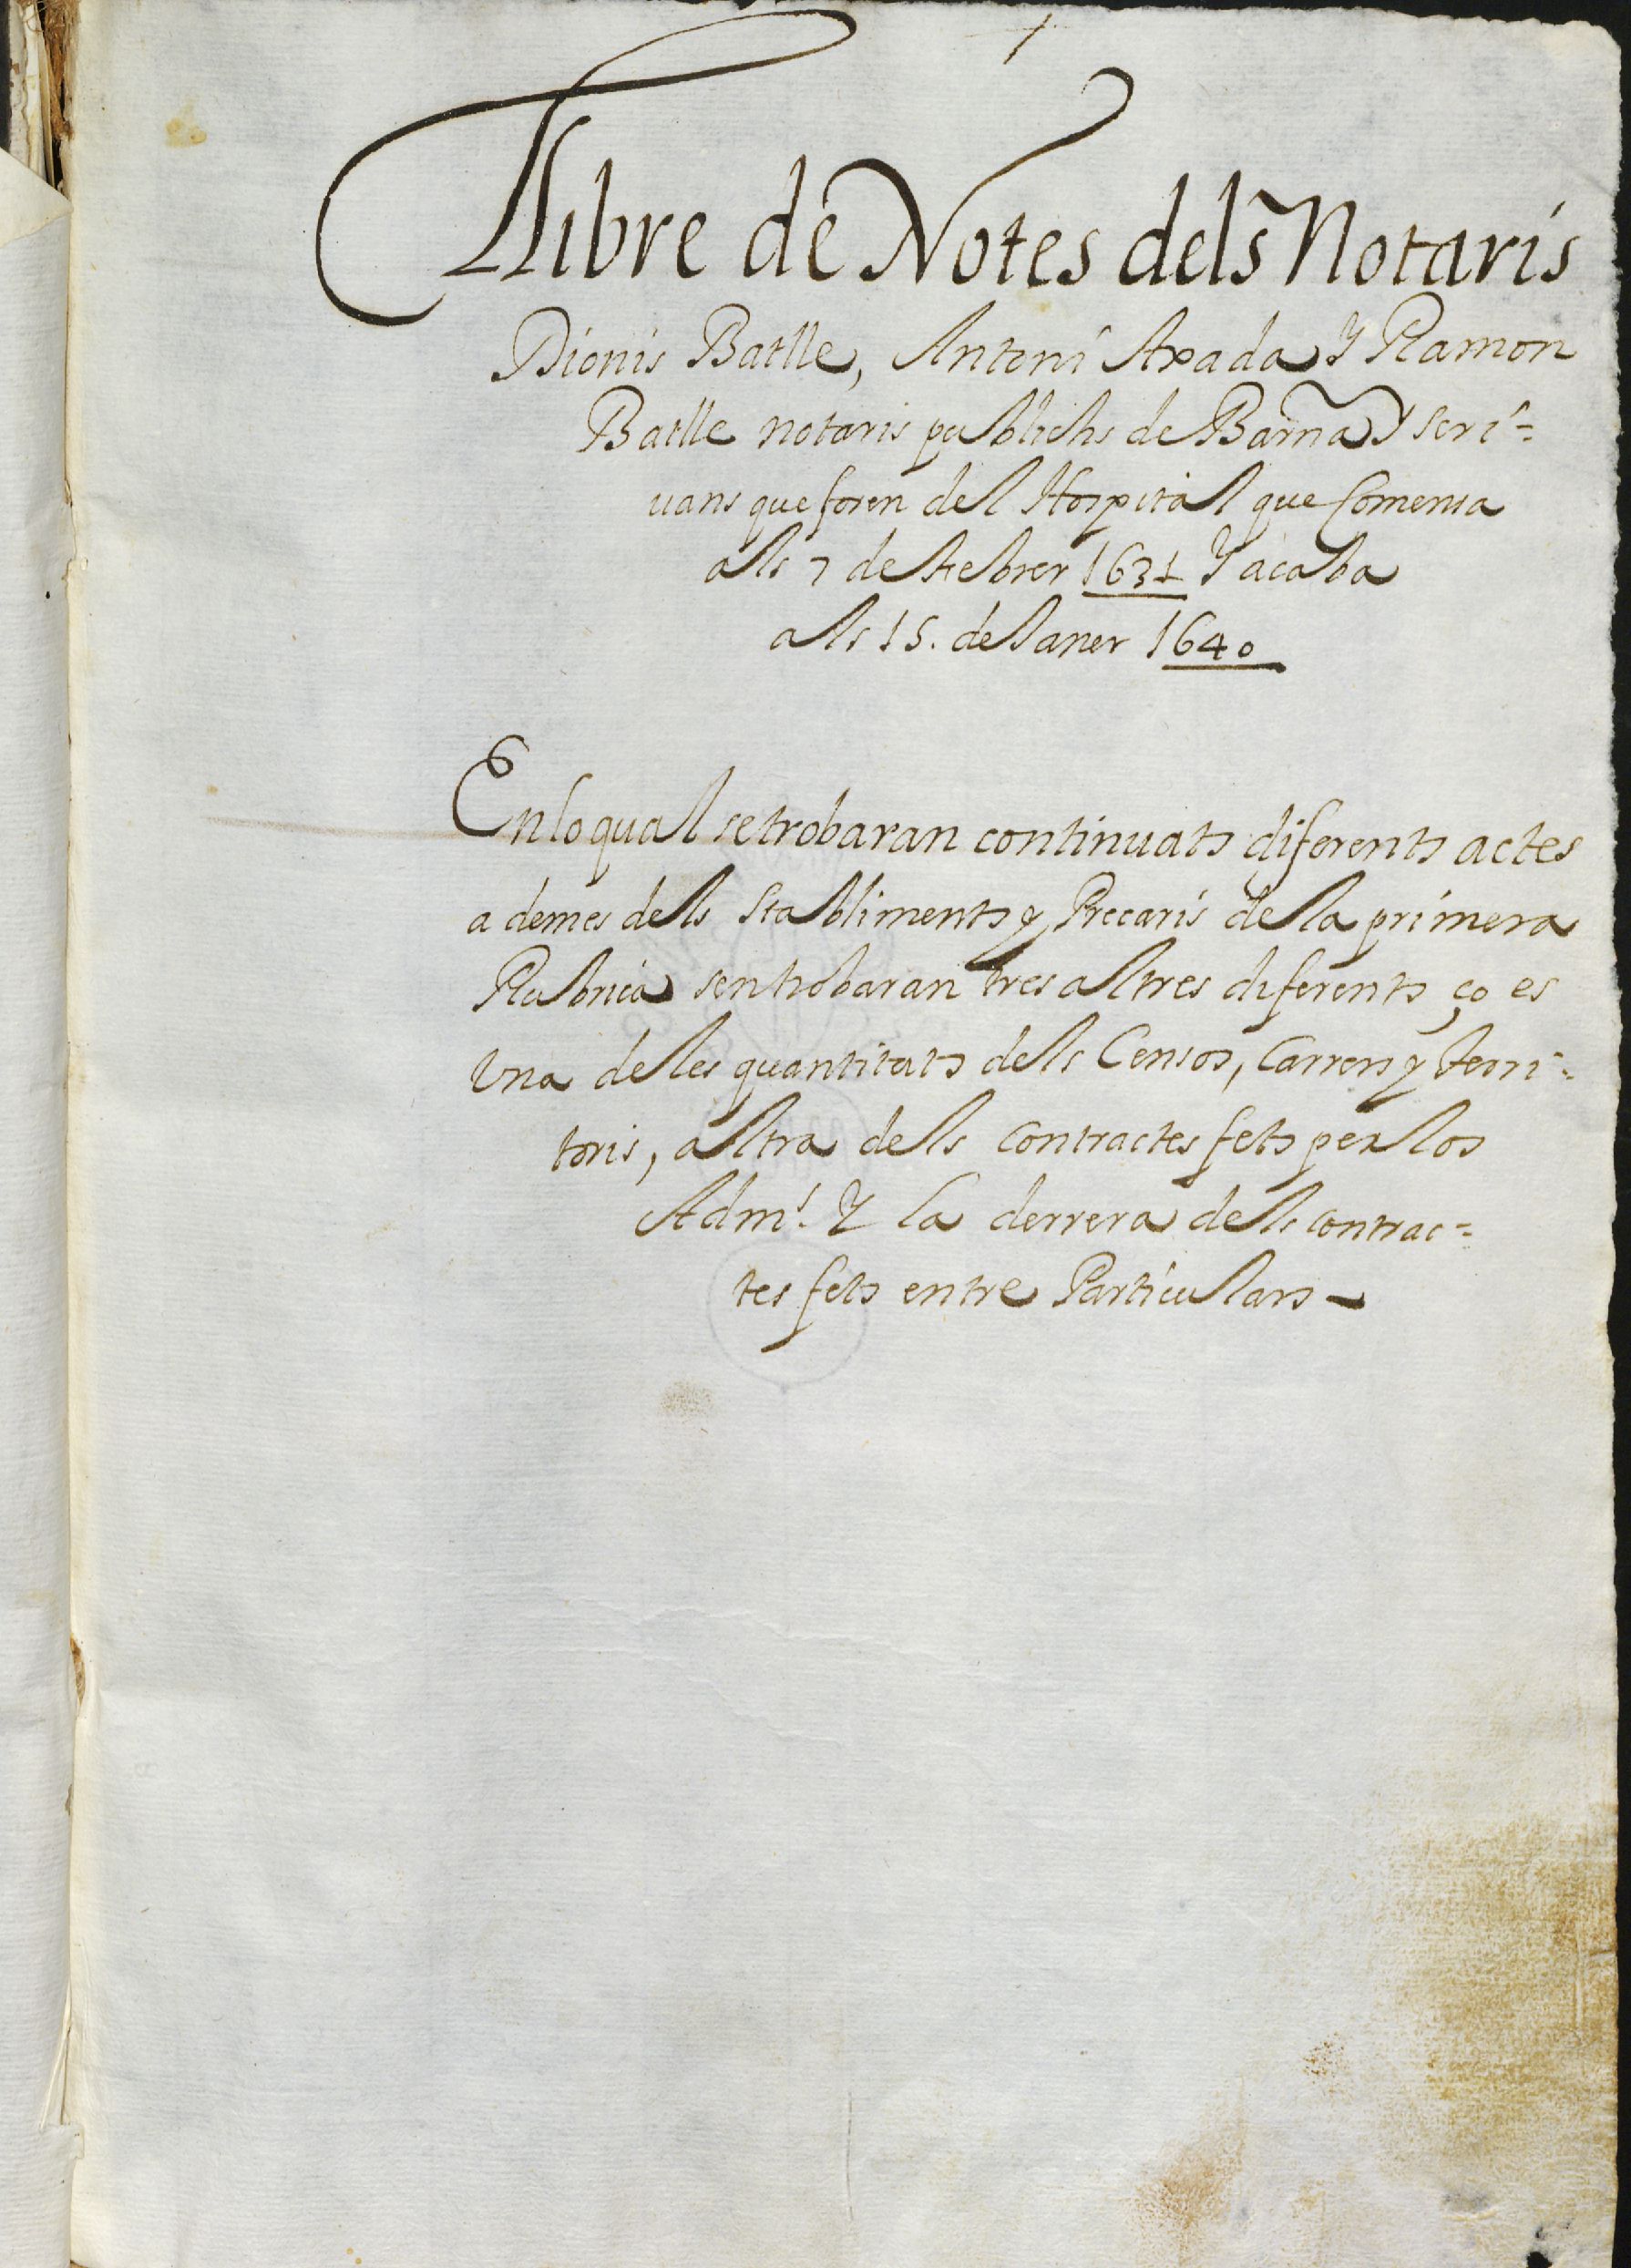 Llibre de Notes dels Notaris
Dionis Batlle, Antoni Axada y Ramon
Batlle notaris publichs de Barna y scri=
uans que foren del Hospital que Comensa
als 7 de Febrer 1631 y acaba
als 15. de Janer 1640
En lo qual se trobaran continuats diferents actes
a demes dels Stabliments y Precaris de la primera
Rubrica sen trobaran tres altres diferents ço es
Una de les quantitats dels Censos, Carrers y Terri=
toris, altra dels contractes fets per los
Adm.ˢ Y la derrera dels contrac=
tes fets entre Particulars